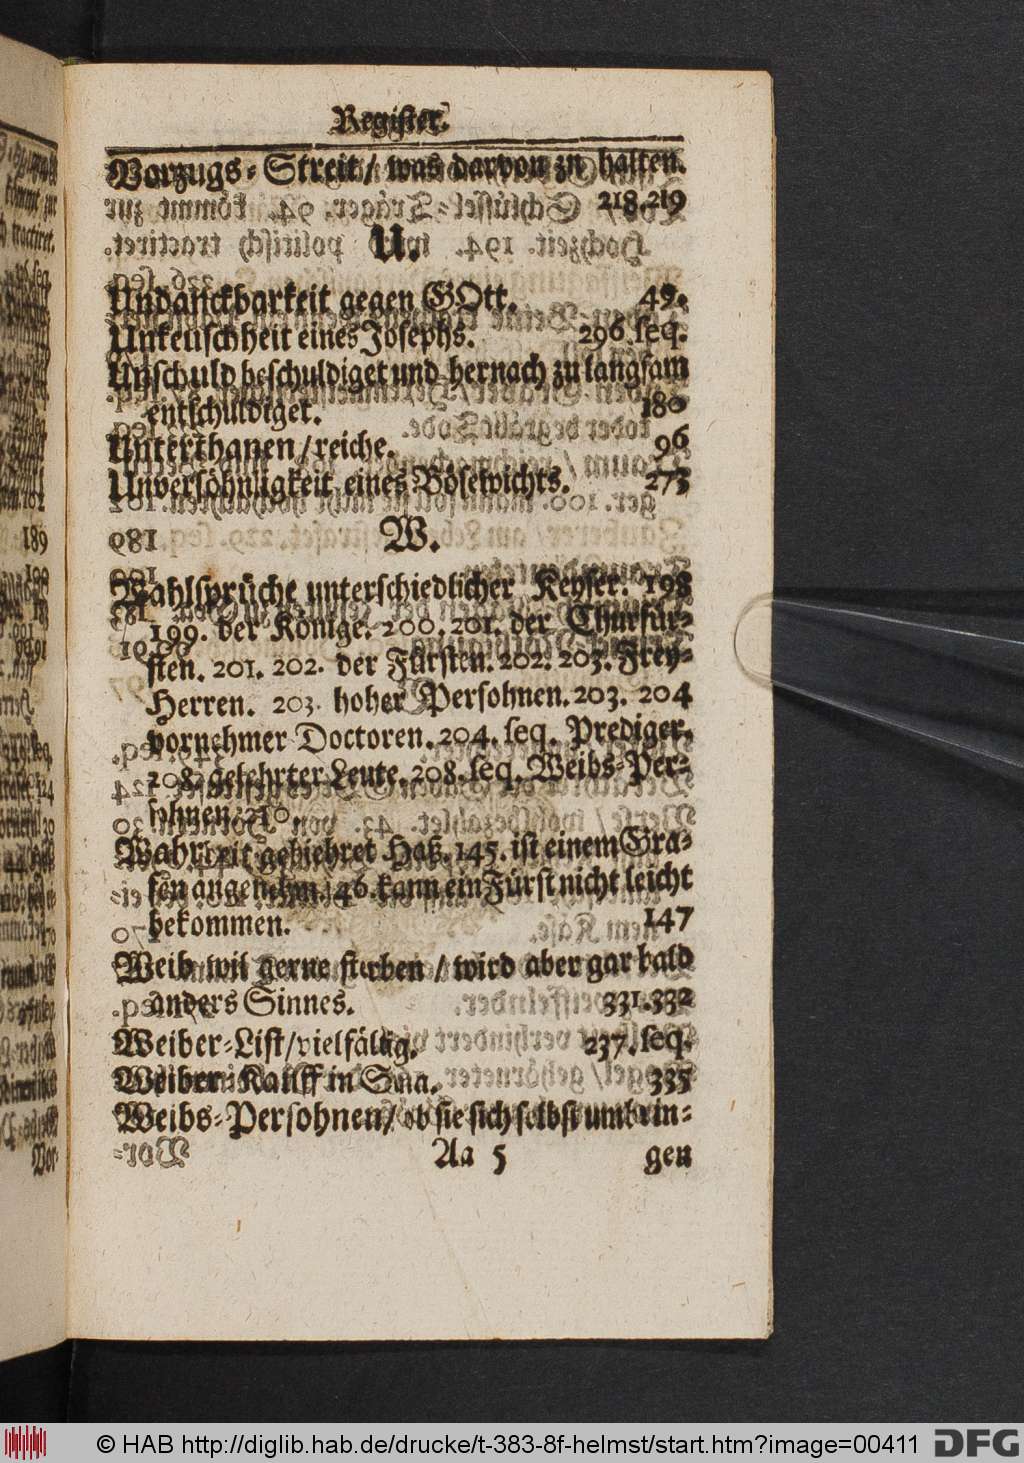 Register.
Vorzugs-Streit / was darvon zu halten.
218.219
U.
Undanckbarkeit gegen GOtt. 49.
Unkeuschheit eines Josephs. 296. seq.
Unschuld beschuldiget und hernach zu langsam
entschuldiget. 180
Unterthanen / reiche. 96
Unversöhnligkeit eines Bösewichts. 275
W.
Wahlsprüche unterschiedlicher Keyser. 198
199. der Könige. 200. 201. der Churfür-
sten. 201. 202. der Fürsten. 202. 203. Frey-
Herren. 203. hoher Persohnen. 203. 204
vornehmer Doctoren. 204. seq. Prediger.
208. gelehrter Leute. 208. seq. Weibs-Per-
sohnen. 210.
Wahrheit gebiehret Haß. 145. ist einem Gra-
fen angenehm. 146. kann ein Fürst nicht leicht
bekommen. 147
Weib wil gerne sterben / wird aber gar bald
anders Sinnes. 331.332
Weiber-List / vielfältig. 237. seq.
Weiber-Kauff in 335
Weibs-Persohnen / ob sie sich selbst umbrin-
Aa 5 gen
© HAB http://diglib.hab.de/drucke/t-383-8f-helmst/start.htm?image=00411 DFG